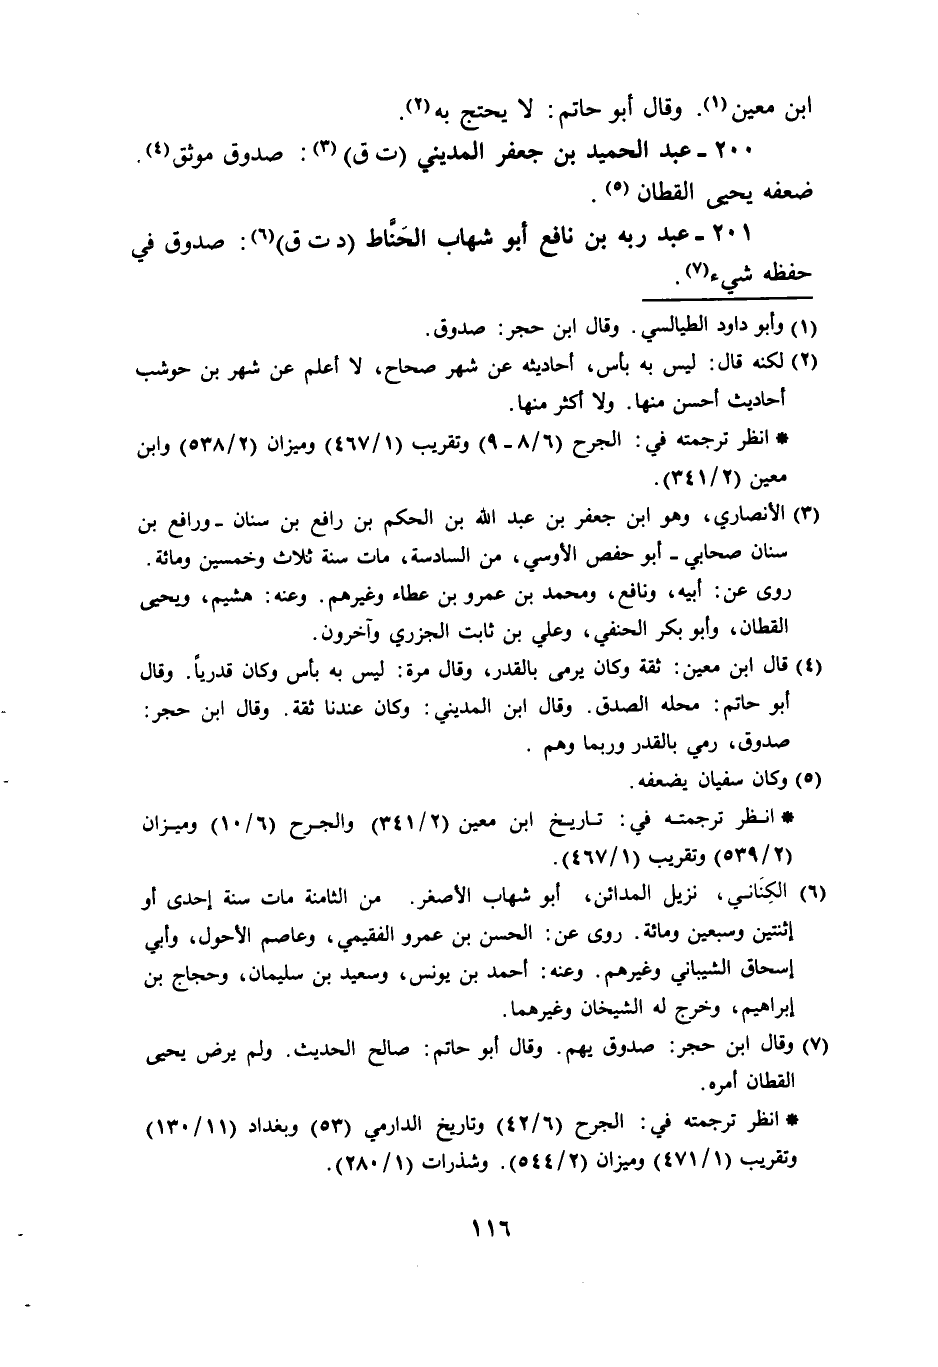 ابن معين (١). وقال أبو حاتم: لا يحتج به (٢).
٢٠٠ ـ عبد الحميد بن جعفر المديني (ت ق) (٣): صدوق موثق (٤).
ضعفه يحيى القطان (٥).
٢٠١ ـ عبد ربه بن نافع أبو شهاب الحَنَّاط (د ت ق) (٦): صدوق في
حفظه شيء (٧).
(١) وأبو داود الطيالسي. وقال ابن حجر: صدوق.
(٢) لكنه قال: ليس به بأس، أحاديثه عن شهر صحاح، لا أعلم عن شهر بن حوشب
أحاديث أحسن منها. ولا أكثر منها.
* انظر ترجمته في: الجرح (٦/ ٨ ـ ٩) وتقريب (١/ ٤٦٧) وميزان (٢/ ٥٣٨) وابن
معين (٢/ ٣٤١).
(٣) الأنصاري، وهو ابن جعفر بن عبد الله بن الحكم بن رافع بن سنان ـ ورافع بن
سنان صحابي ـ أبو حفص الأوسي، من السادسة، مات سنة ثلاث وخمسين ومائة.
روى عن: أبيه، ونافع، ومحمد بن عمرو بن عطاء وغيرهم. وعنه: هشيم، ويحيى
القطان، وأبو بكر الحنفي، وعلي بن ثابت الجزري وآخرون.
(٤) قال ابن معين: ثقة وكان يرمى بالقدر، وقال مرة: ليس به بأس وكان قدرياً. وقال
أبو حاتم: محله الصدق. وقال ابن المديني: وكان عندنا ثقة. وقال ابن حجر:
صدوق، رمي بالقدر وربما وهم.
(٥) وكان سفيان يضعفه.
* انظر ترجمته في: تاريخ ابن معين (٢/ ٣٤١) والجرح (٦/ ١٠) وميزان
(٢/ ٥٣٩) وتقريب (١/ ٤٦٧).
(٦) الكِنَاني، نزيل المدائن، أبو شهاب الأصغر. من الثامنة مات سنة إحدى أو
إثنتين وسبعين ومائة. روى عن: الحسن بن عمرو الفقيمي، وعاصم الأحول، وأبي
إسحاق الشيباني وغيرهم. وعنه: أحمد بن يونس، وسعيد بن سليمان، وحجاج بن
إبراهيم، وخرج له الشيخان وغيرهما.
(٧) وقال ابن حجر: صدوق يهم. وقال أبو حاتم: صالح الحديث. ولم يرض يحيى
القطان أمره.
* انظر ترجمته في: الجرح (٦/ ٤٢) وتاريخ الدارمي (٥٣) وبغداد (١١/ ١٣٠)
وتقريب (١/ ٤٧١) وميزان (٢/ ٥٤٤). وشذرات (١/ ٢٨٠).
١١٦